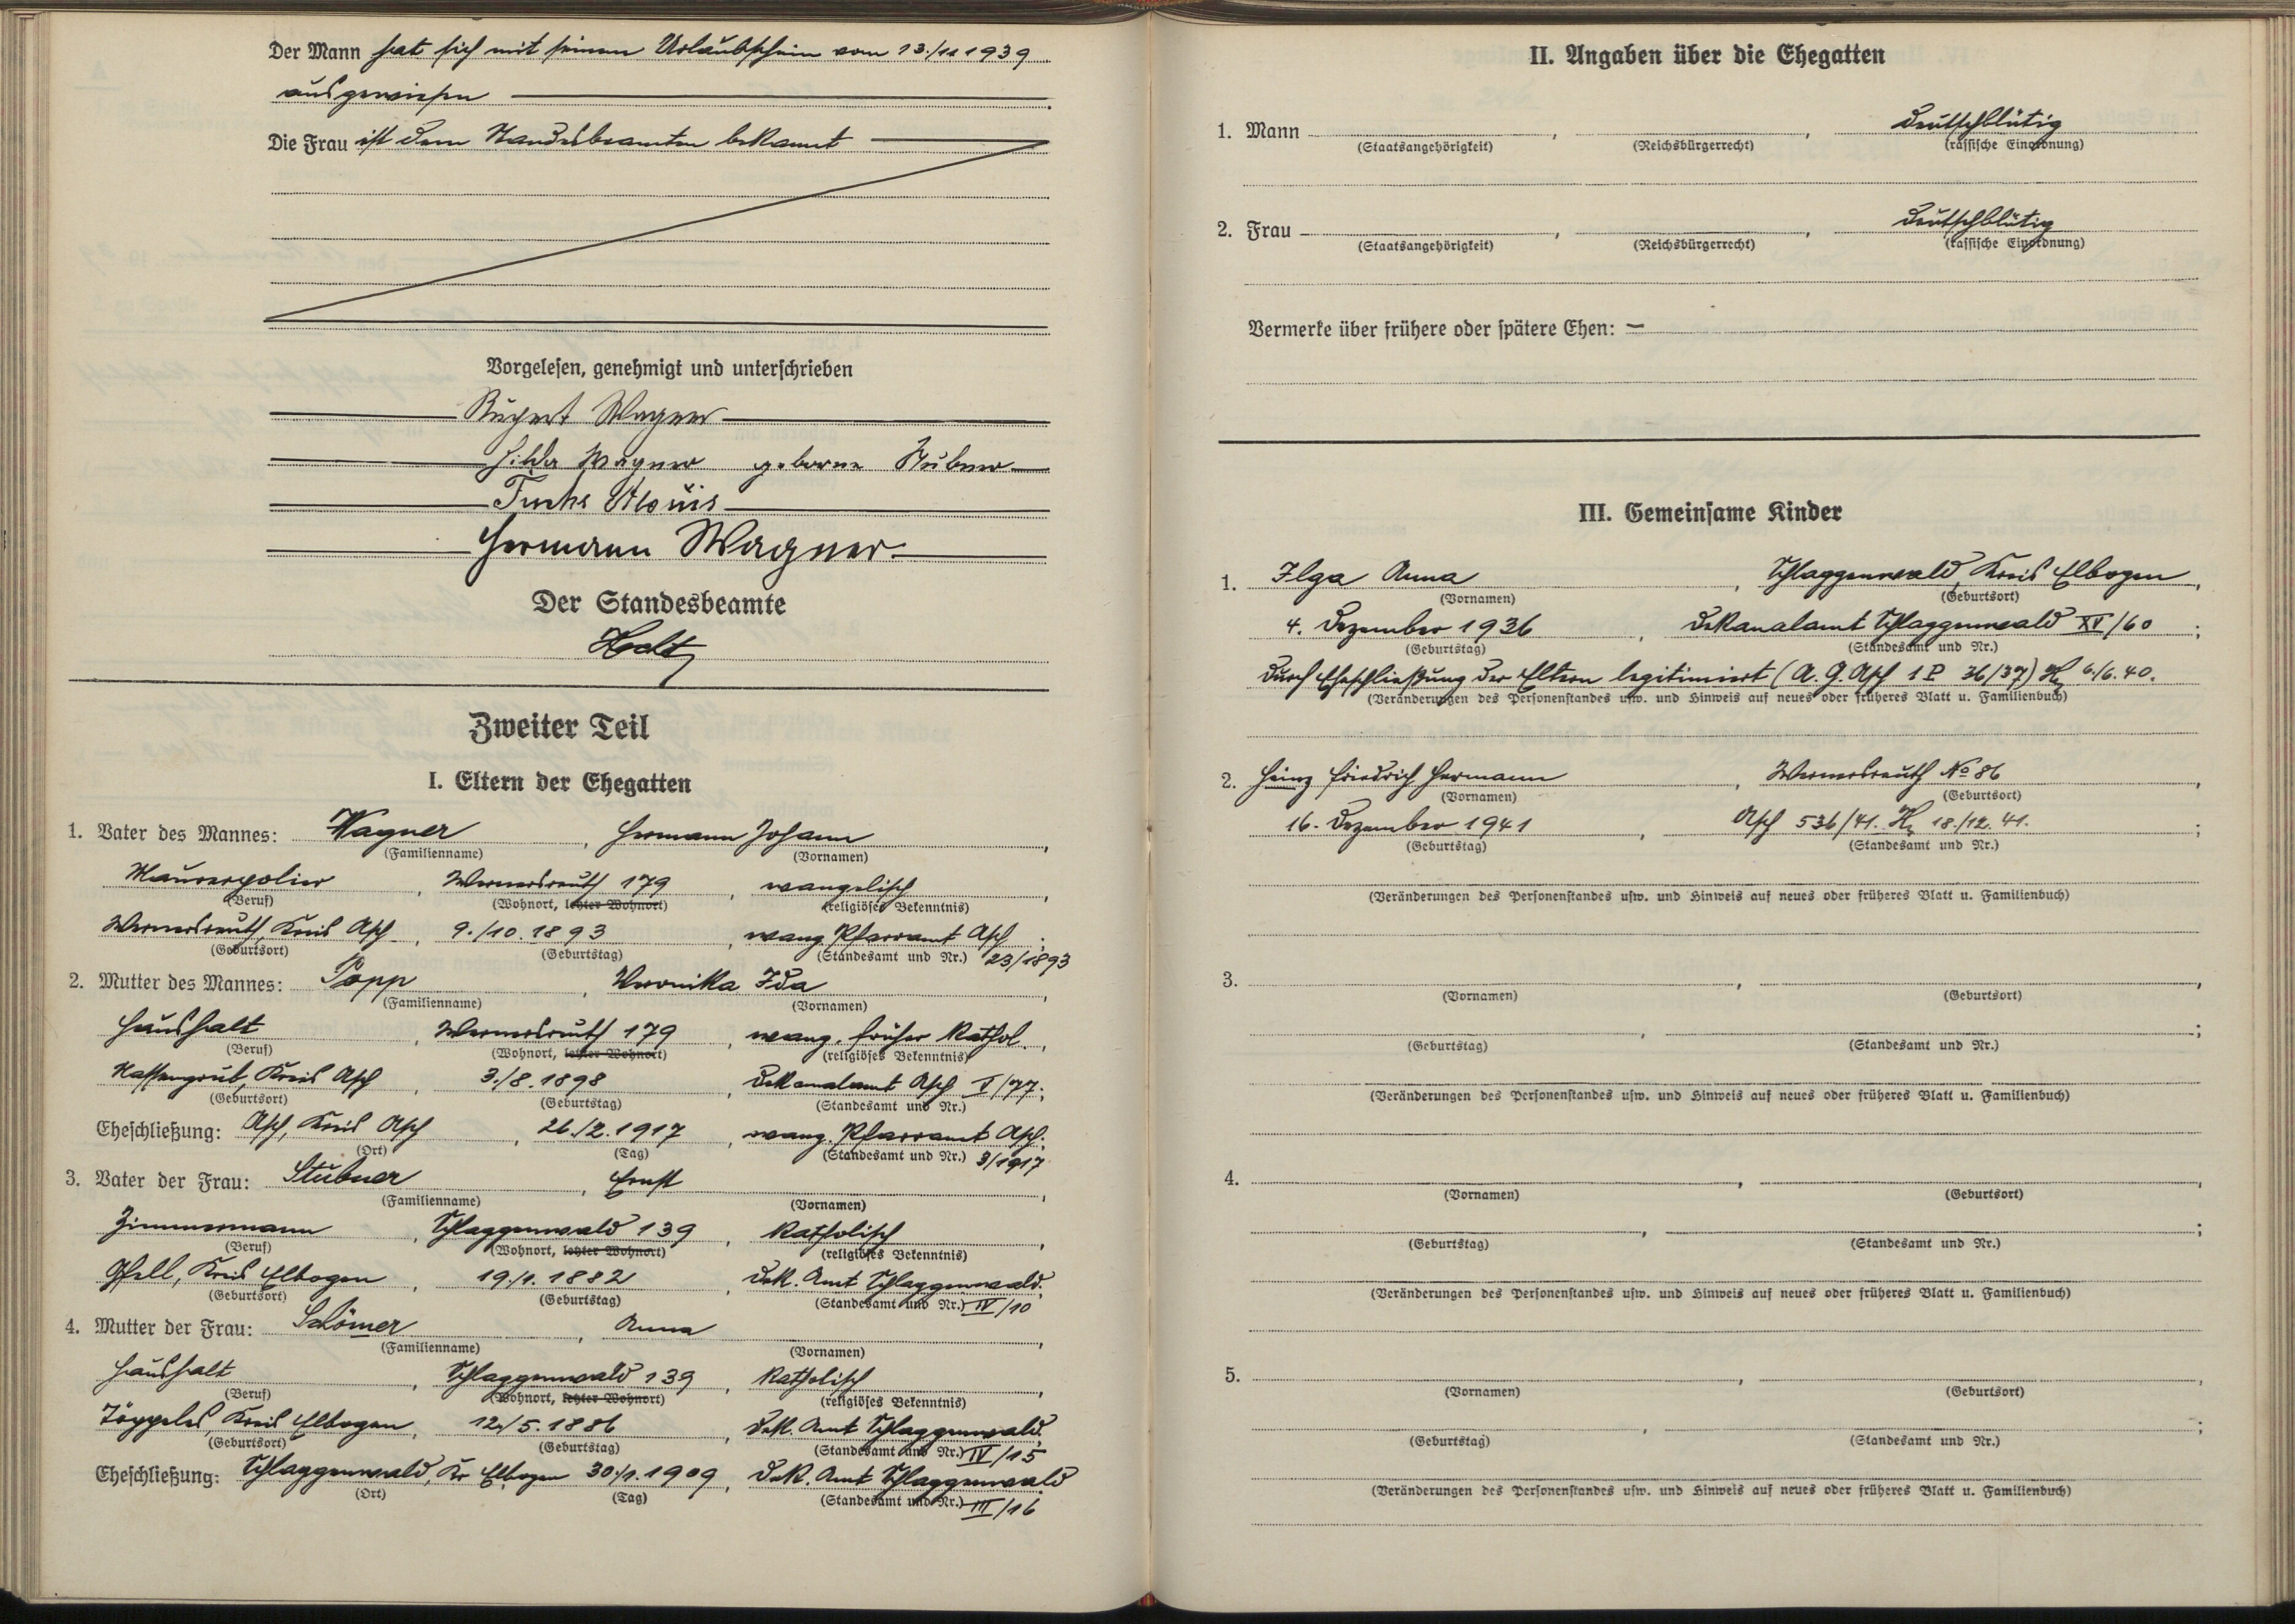 Der Mann hat sich mit seinem Urlaubschein vom 13./11 1939
ausgewiesen
Die Frau ist dem Standesbeamten bekannt
Vorgelesen, genehmigt und unterschrieben
Rupert Wagner
Hilda Wagner geborne Stübner
Fuchs Alois
Hermann Wagner
Der Standesbeamte
Zweiter Teil
I. Eltern der Ehegatten
1. Vater des Mannes: Wagner, Hermann Johann,
(Familienname) (Vornamen)
Maurerpolier, Wernersreuth 179, evangelisch
(Beruf) (Wohnort, letzter Wohnort) (religiöses Bekenntnis)
Wernersreuth, Kreis Asch, 9./10.1893, evang. Pfarramt Asch;
(Geburtsort) (Geburtstag) (Standesamt und Nr.) 23/1893
2. Mutter des Mannes: Popp, Veronika Ida,
(Familienname) (Vornamen)
Haushalt, Wernersreuth 179, evang. früher kathol.,
(Beruf) (Wohnort, letzter Wohnort) (religiöses Bekenntnis)
Nassengrub, Kreis Asch, 3./8.1898, Dekanalamt Asch I/77;
(Geburtsort) (Geburtstag) (Standesamt und Nr.)
Eheschließung: Asch, Kreis Asch, 26./2.1917, evang. Pfarramt Asch.
(Ort) (Tag) (Standesamt und Nr.) 3/1917
3. Vater der Frau: Stübner, Ernst,
(Familienname) (Vornamen)
Zimmermann, Schlaggenwald 139, katholisch,
(Beruf) (Wohnort, letzter Wohnort) (religiöses Bekenntnis)
Gfell, Kreis Elbogen, 19./1.1882, Dek. Amt Schlaggenwald;
(Geburtsort) (Geburtstag) (Standesamt und Nr.) IV/10
4. Mutter der Frau: Anna,
(Familienname) (Vornamen)
Haushalt, Schlaggenwald 139, katholisch,
(Beruf) (Wohnort, letzter Wohnort) (religiöses Bekenntnis)
Töppeles, Kreis Elbogen, 12./5.1886, Dek. Amt Schlaggenwald;
(Geburtsort) (Geburtstag) (Standesamt und Nr.) IV/15
Eheschließung: Schlaggenwald, Kr Elbogen 30./1.1909, Dek. Amt Schlaggenwald
(Ort) (Tag) (Standesamt und Nr.) III/16
II. Angaben über die Ehegatten
1. Mann, , deutschblütig
(Staatsangehörigkeit) (Reichsbürgerrecht) (rassische Einordnung)
2. Frau, , deutschblütig
(Staatsangehörigkeit) (Reichsbürgerrecht) (rassische Einordnung)
Vermerke über frühere oder spätere Ehen: —
III. Gemeinsame Kinder
1. Ilga Anna, Schlaggenwald, Kreis Elbogen,
(Vornamen) (Geburtsort)
4. Dezember 1936, Dekanalamt Schlaggenwald XV/60;
(Geburtstag) (Standesamt und Nr.)
Durch Eheschließung der Eltern legitimiert (A. G. Asch 1 P 36/37) 6./6.40.
(Veränderungen des Personenstandes usw. und Hinweis auf neues oder früheres Blatt u. Familienbuch)
2. Heinz Friedrich Hermann, Wernersreuth No 86,
(Vornamen) (Geburtsort)
16. Dezember 1941, Asch 536/41. 18./12.41.;
(Geburtstag) (Standesamt und Nr.)
(Veränderungen des Personenstandes usw. und Hinweis auf neues oder früheres Blatt u. Familienbuch)
3. , ,
(Vornamen) (Geburtsort)
, ;
(Geburtstag) (Standesamt und Nr.)
(Veränderungen des Personenstandes usw. und Hinweis auf neues oder früheres Blatt u. Familienbuch)
4. , ,
(Vornamen) (Geburtsort)
, ;
(Geburtstag) (Standesamt und Nr.)
(Veränderungen des Personenstandes usw. und Hinweis auf neues oder früheres Blatt u. Familienbuch)
5. , ,
(Vornamen) (Geburtsort)
, ;
(Geburtstag) (Standesamt und Nr.)
(Veränderungen des Personenstandes usw. und Hinweis auf neues oder früheres Blatt u. Familienbuch)